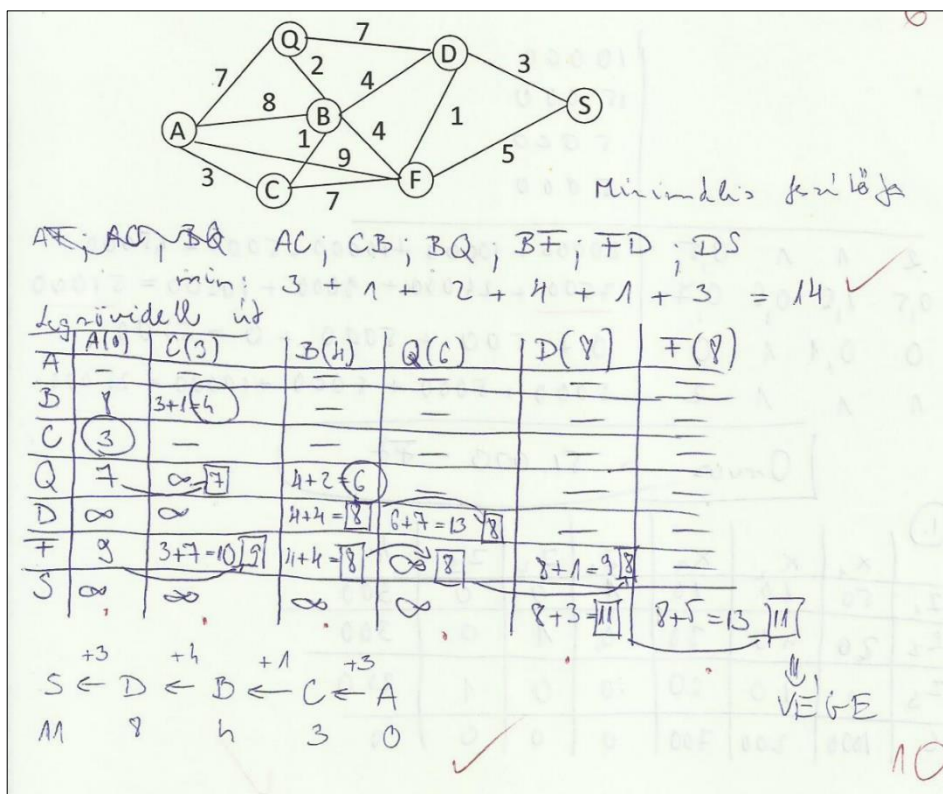 6
Q 7 D
7 2 4 3
8 B S
A 1 4 1
9 5
3 C 7 F
Minimális feszítőfa
AF, AQ, BQ AC, CB, BQ, BF, FD, DS
min: 3 + 1 + 2 + 4 + 1 + 3 = 14
Legrövidebb út
A(0) C(3) B(4) Q(6) D(8) F(8)
A — — — — — —
B 8 3+1=4 — — — —
C 3 — — — — —
Q 7 ∞ 7 4+2=6 — — —
D ∞ ∞ 4+4=8 6+7=13 8 — —
F 9 3+7=10 9 4+4=8 ∞ 8 8+1=9 8 —
S ∞ ∞ ∞ ∞ 8+3=11 8+5=13 11
⇓
VÉGE
+3 +4 +1 +3
S ← D ← B ← C ← A
11 8 4 3 0
10